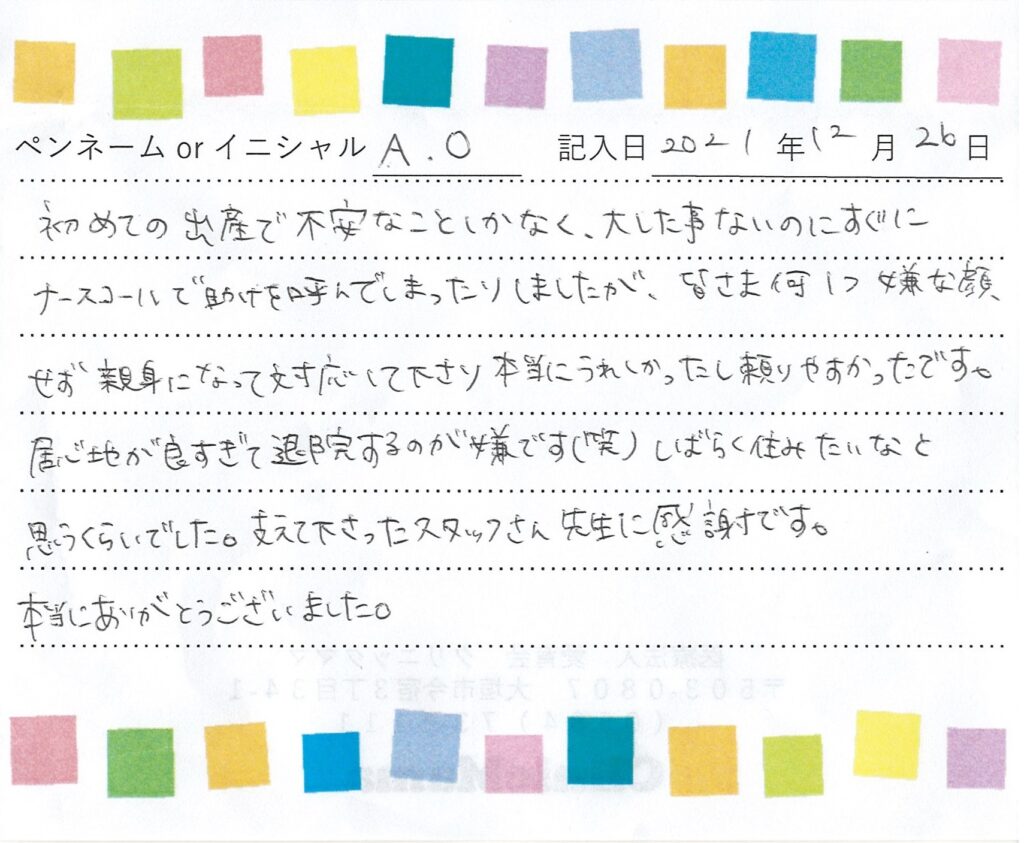 ペンネーム or イニシャル A.O 記入日 2021年12月26日
初めての出産で不安なことしかなく、大した事ないのにすぐに
ナースコールで助けを呼んでしまったりしましたが、皆さま何1つ嫌な顔
せず親身になって対応して下さり本当にうれしかったし頼りやすかったです。
居心地が良すぎて退院するのが嫌です(笑)しばらく住みたいなと
思うくらいでした。支えて下さったスタッフさん先生に感謝です。
本当にありがとうございました。